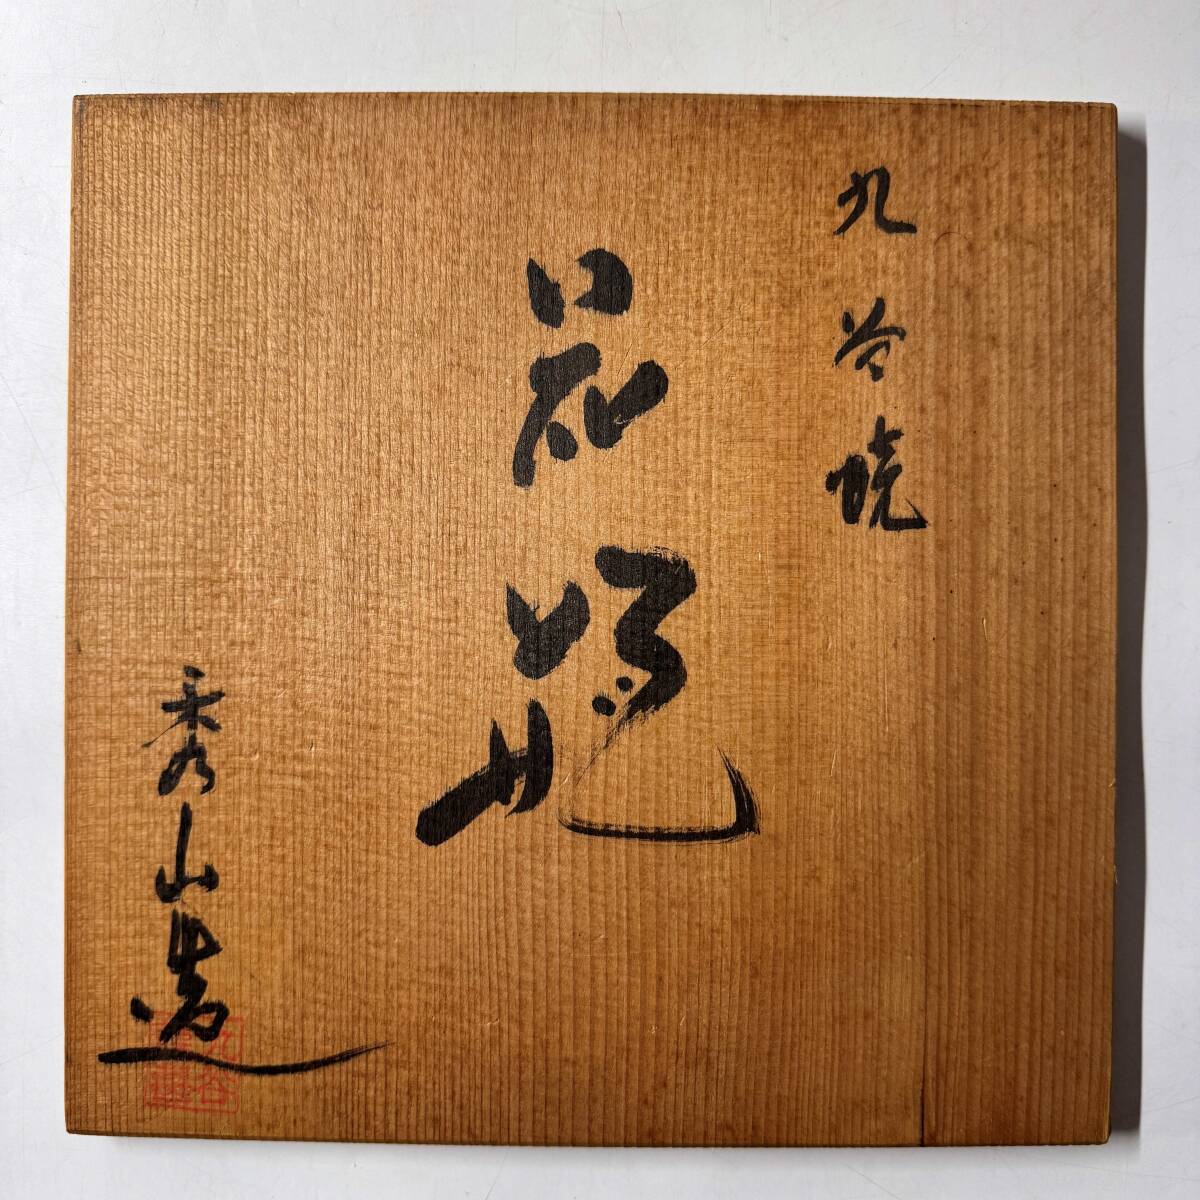 九谷焼
花瓶
秀山造
九谷